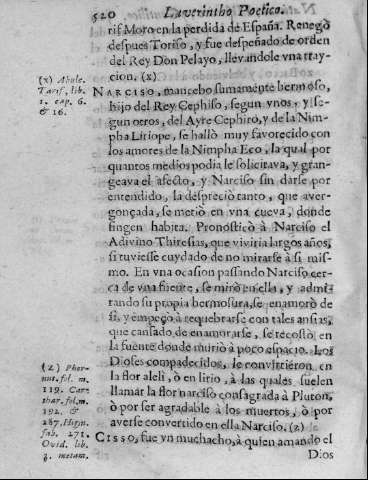 520 Laverintho Poetico.
rif Moro en la perdida de España. Renegò
despues Toriso, y fue despeñado de orden
del Rey Don Pelayo, llevandole vna tray-
cion. (x)
(x) Abule.
Tarif, lib.
1. cap. 6.
& 16.
NARCISO, mancebo sumamente hermoso,
hijo del Rey Cephiso, segun vnos, y se-
gun otros, del Ayre Cephiro, y de la Nim-
pha Liriope, se hallò muy favorecido con
los amores de la Nimpha Eco, la qual por
quantos medios podia le solicitava, y gran-
geava el afecto, y Narciso sin darse por
entendido, la despreciò tanto, que aver-
gonçada, se metiò en vna cueva, donde
fingen habita. Pronosticò à Narciso el
Adivino Thiresias, que viviria largos años,
si tuviesse cuydado de no mirarse à si mis-
mo. En vna ocasion passando Narciso cer-
ca de vna fuente, se mirò en ella, y admi-
rando su propia hermosura, se enamorò de
si, y empeçò à requebrarse con tales ansias,
que cansado de enamorarse, se recostò en
la fuente donde muriò à poco espacio. Los
Dioses compadecidos, le convirtieron en
la flor alelì, ò en lirio, à las quales suelen
llamar la flor narciso consagrada à Pluton,
ò por ser agradable à los muertos, ò por
averse convertido en ella Narciso. (z)
(z) Phor-
nut. fol. m.
119. Car-
thar. fol. m.
192. &
287. Higin.
fab. 271.
Ovid. lib.
3. metam.
CISSO, fue vn muchacho, à quien amando el
Dios